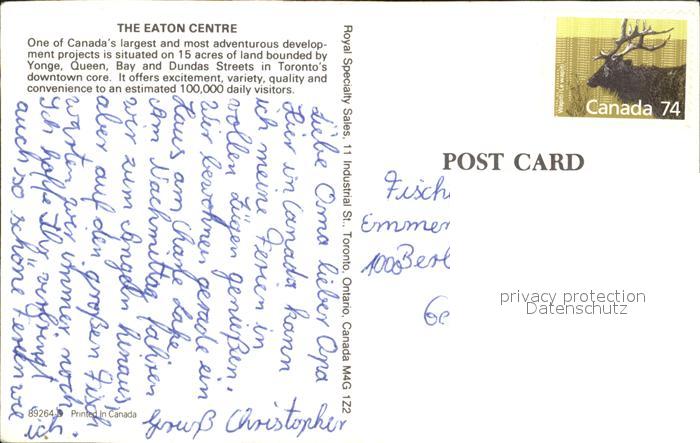 THE EATON CENTRE
One of Canada's largest and most adventurous develop-
ment projects is situated on 15 acres of land bounded by
Yonge, Queen, Bay and Dundas Streets in Toronto's
downtown core. It offers excitement, variety, quality and
convenience to an estimated 100,000 daily visitors.
Liebe Oma lieber Opa
Hier in Canada kann
ich meine Ferien in
vollen Zügen genießen.
Wir bewohnen gerade ein
Haus am Lake.
Am Nachmittag fahren
wir zum Angeln hinaus
aber auf den großen Fisch
warten wir immer noch.
Ich hoffe Ihr verbringt
auch so schöne Ferien wie
ich.
Gruß Christopher
89264-D Printed in Canada
Royal Specialty Sales, 11 Industrial St., Toronto, Ontario, Canada M4G 1Z2
Wapiti Le wapiti
Canada 74
POST CARD
Fisch
Emmer
1000 Berl
6e
privacy protection
Datenschutz